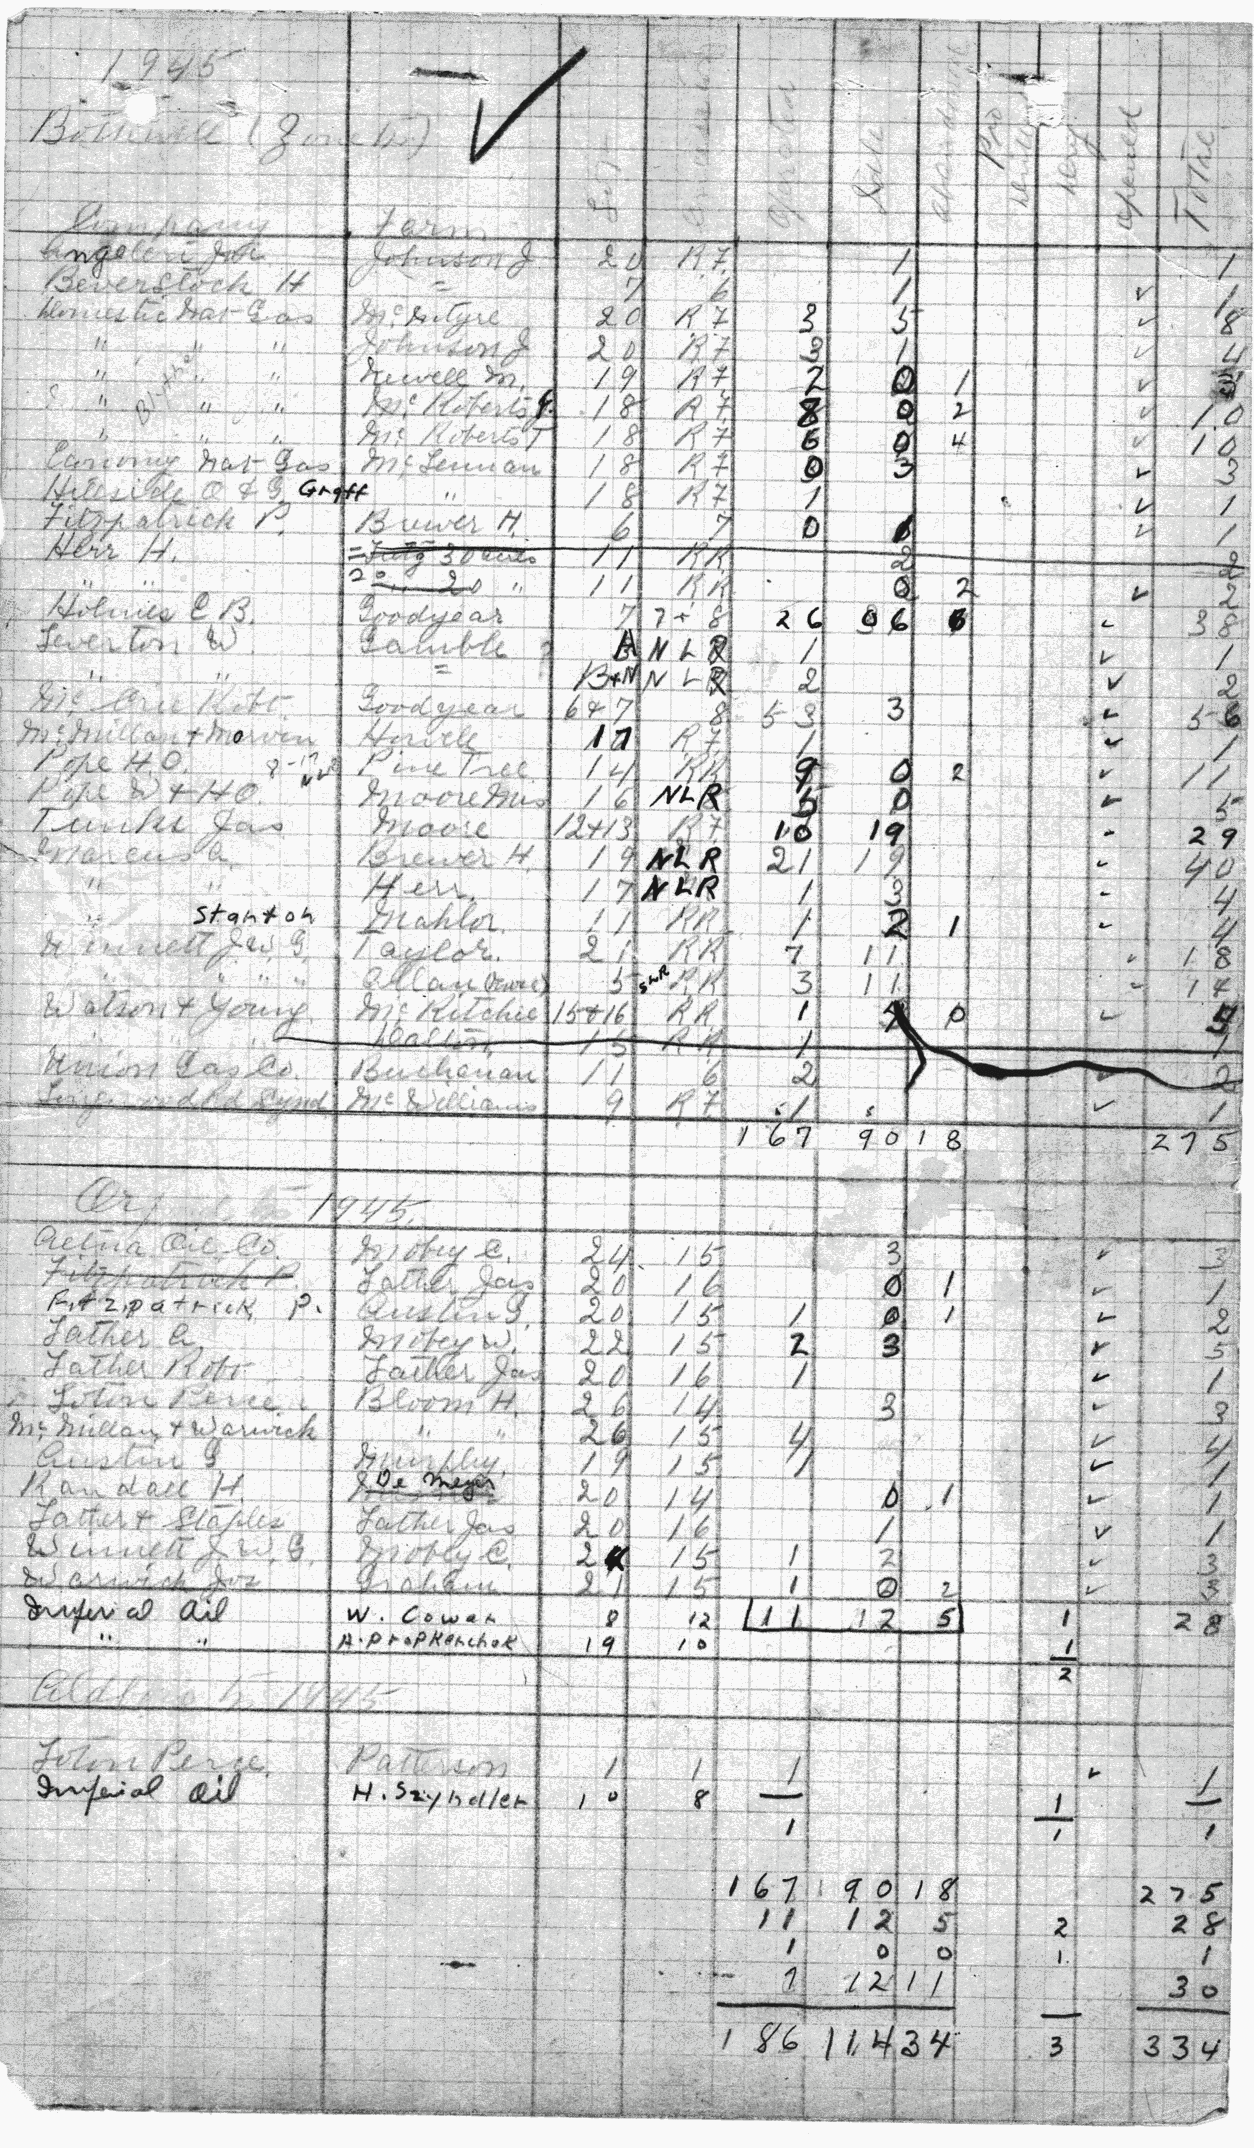 1945
Bothwell (June
Company Farm Lot Concession Operated Idle abandoned Pro Dry opened Total
Angolen Johnson J 20 R7 1 1
Beverstock H = 7 6 1 1
Domestic Nat Gas McIntyre 20 R7 3 5 8
" " " Johnson J 20 R7 3 1 4
" " " Newell M. 19 R7 2 0 1 3
" " " McRoberts J. 18 R7 8 0 2 10
" " " McRoberts T 18 R7 6 0 4 10
Economy Nat Gas McLennan 18 R7 0 3 3
Hillside O & G Graff " 18 R7 1 1
Fitzpatrick P. Brewer H. 6 7 0 1 1
Herr H. 30 acres 11 RR 2 2
20 " 11 RR 0 2 2
Holmes E B. Goodyear 7 7+8 26 06 6 38
Leverton W. Gamble NLR 1 1
" " = B+N NLR 2 2
Mc Robt. Goodyear 6+7 8 53 3 56
McMillan + Marvin Howell 17 R7 1 1
Pope H.O. Pine Tree 14 RR 9 0 2 11
Pope W + H O. Moore Mrs 16 NLR 5 0 5
Jas Moore 12+13 R7 10 19 29
Marcus A. Brewer H. 19 NLR 21 19 40
" " Herr. 17 NLR 1 3 4
" Stanton Mahlon 11 RR 1 2 1 4
Winnett J.W.G. Taylor. 21 RR 7 11 18
" " " Allan 5 SWR RR 3 11 14
Watson + Young McRitchie 15+16 RR 1 4 0
Dalton 15 RR 1 1
Union Gas Co. Buchanan 11 6 2 2
Synd McWilliams 9 R7 1 1
167 90 18 275
Orford 1945.
Aetna Oil Co. Mobey C. 24 15 3 3
Fitzpatrick P. Lather Jas 20 16 0 1 1
Fitzpatrick P. Austin G. 20 15 1 0 1 2
Lather A Mobey W. 22 15 2 3 5
Lather Robt. Lather Jas 20 16 1 1
Loton Perce Bloom H. 26 14 3 3
McMillan + Warwick " " 26 15 4 4
Austin G Murphy 19 15 1 1
Randall H. De Meyer 20 14 0 1 1
Lather + Staples Lather Jas 20 16 1 1
Winnett J.W.G. Mobey C. 24 15 1 2 3
Warwick Jos Graham 21 15 1 0 2 3
Imperial Oil W. Cowan 8 12 11 12 5 1 28
" " A. Propkenchok 19 10 1
2
1945
Loton Perce. Patterson 1 1 1 1
Imperial Oil H. Szyndler 10 8 1
1 1 1
167 90 18 275
11 12 5 2 28
1 0 0 1 1
7 12 11 30
186 114 34 3 334